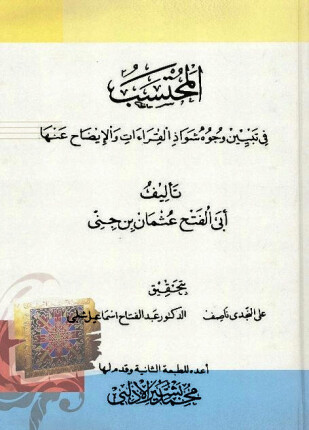 المُحْتَسَبُ
فى تَبْيِيْن وُجُوْهُ شَوَاذِ القِرَاءَاتِ وَالإيضَاحِ عَنهَا
تَأليفُ
أبى الفَتْح عُثمَان بن جِنِّى
بتحقيق
على النجدى ناصف الدكتور عبد الفتاح اسماعيل شلبى
أعده للطبعة الثانية وقدم لها
محمد بشير الإدلبي